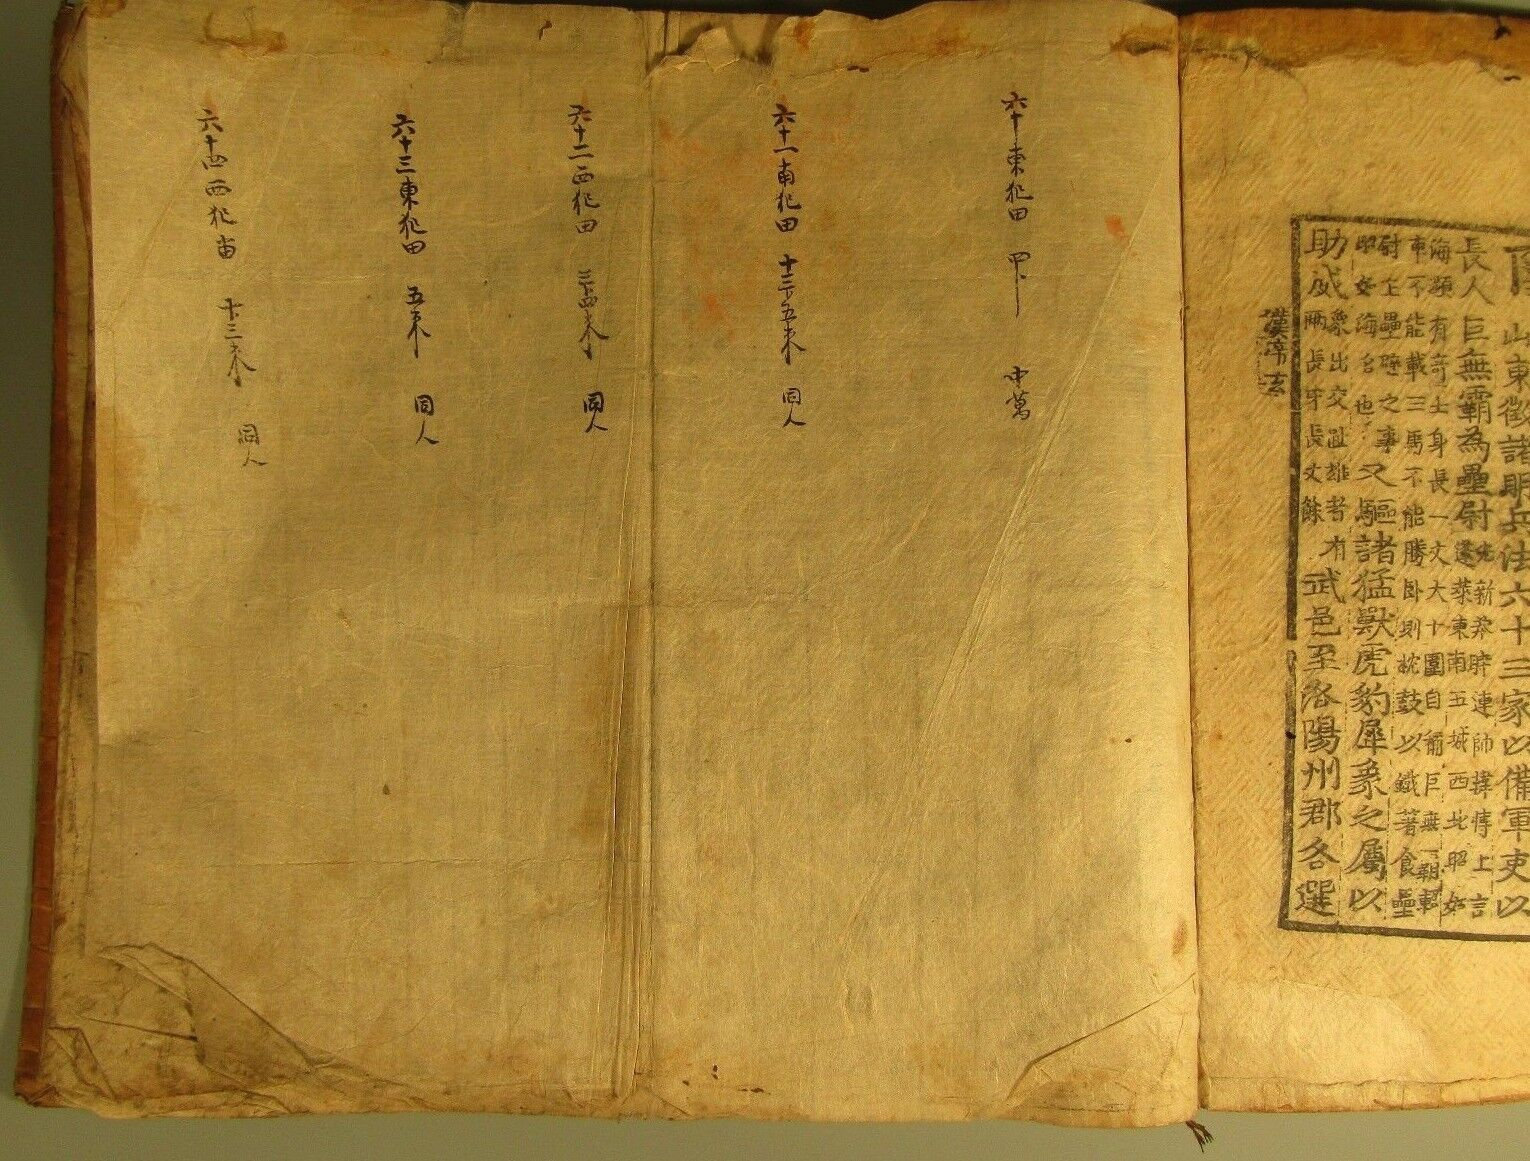 山東徵諸明兵法六十三家以備軍吏以
長人巨無霸為壘尉
新莽時連師擇悼上言
蓬萊東南五城西北昭如
海瀕有奇士身長一丈大十圍自謂巨無霸軺
車不能載三馬不能勝臥則枕鼓以鐵著食壘
尉主壘壁之事
昭如海名也
又驅諸猛獸虎豹犀象之屬以
助威
象出交趾雄者有
兩長牙長丈餘
武邑至洛陽州郡各選
漢帝玄
六十東犯田 四卜 中萬
六十一南犯田 十三卜五束 同人
六十二西犯田 同人
六十三東犯田 五束 同人
六十四西犯畓 十三束 同人